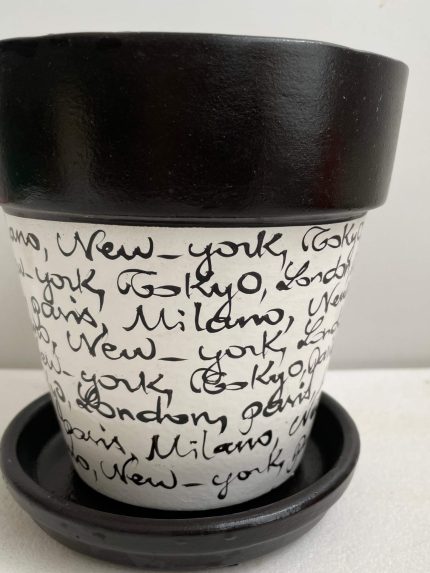 New-york, Tokyo
york, Tokyo, London
paris, Milano, New
New-york, Lond
ew-york, Tokyo, par
London, paris,
paris, Milano, N
New-york